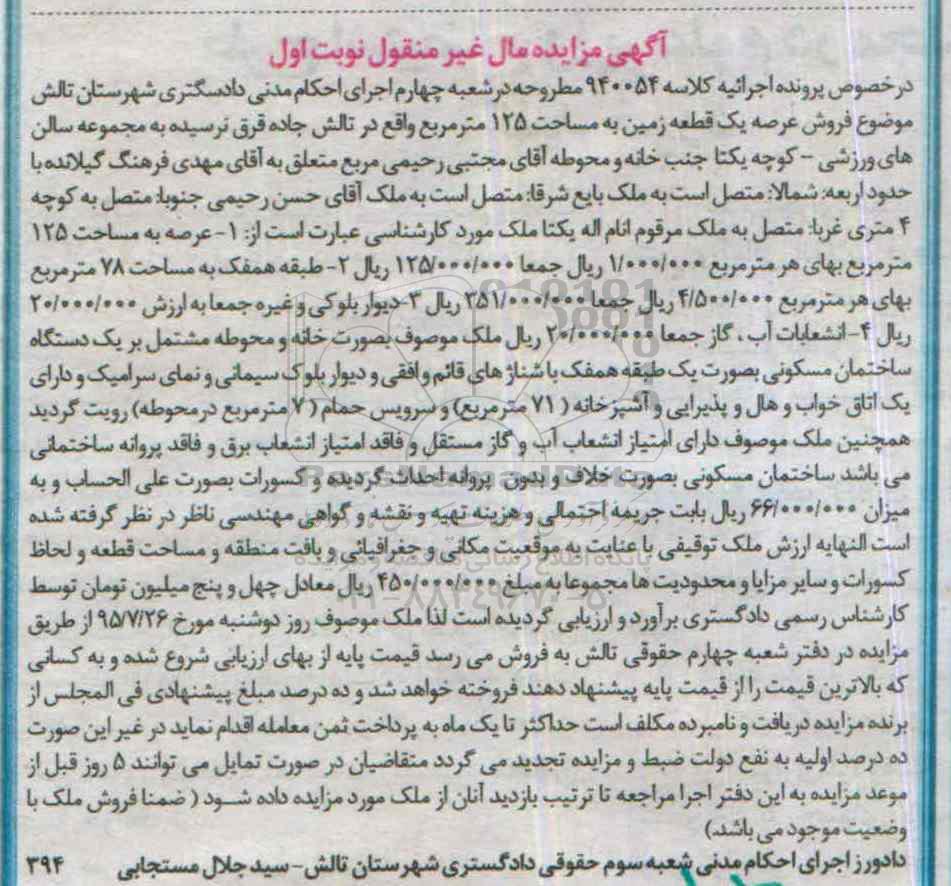 آگهی مزایده مال غیر منقول نوبت اول
درخصوص پرونده اجرائیه کلاسه ۹۴۰۰۵۴ مطروحه در شعبه چهارم اجرای احکام مدنی دادسگتری شهرستان تالش
موضوع فروش عرصه یک قطعه زمین به مساحت ۱۲۵ مترمربع واقع در تالش جاده قرق نرسیده به مجموعه سالن
های ورزشی – کوچه یکتا جنب خانه و محوطه آقای مجتبی رحیمی مربع متعلق به آقای مهدی فرهنگ گیلانده با
حدود اربعه: شمالا: متصل است به ملک بایع شرقا: متصل است به ملک آقای حسن رحیمی جنوبا: متصل به کوچه
۴ متری غربا: متصل به ملک مرقوم انام اله یکتا ملک مورد کارشناسی عبارت است از: ۱- عرصه به مساحت ۱۲۵
مترمربع بهای هر مترمربع ۱/۰۰۰/۰۰۰ ریال جمعا ۱۲۵/۰۰۰/۰۰۰ ریال ۲- طبقه همفک به مساحت ۷۸ مترمربع
بهای هر مترمربع ۴/۵۰۰/۰۰۰ ریال جمعا ۳۵۱/۰۰۰/۰۰۰ ریال ۳-دیوار بلوکی و غیره جمعا به ارزش ۲۰/۰۰۰/۰۰۰
ریال ۴- انشعابات آب ، گاز جمعا ۲۰/۰۰۰/۰۰۰ ریال ملک موصوف بصورت خانه و محوطه مشتمل بر یک دستگاه
ساختمان مسکونی بصورت یک طبقه همفک با شناژ های قائم وافقی و دیوار بلوک سیمانی و نمای سرامیک و دارای
یک اتاق خواب و هال و پذیرایی و آشپزخانه ( ۷۱ مترمربع) و سرویس حمام ( ۷ مترمربع در محوطه) رویت گردید
همچنین ملک موصوف دارای امتیاز انشعاب آب و گاز مستقل و فاقد امتیاز انشعاب برق و فاقد پروانه ساختمانی
می باشد ساختمان مسکونی بصورت خلاف و بدون پروانه احداث گردیده و کسورات بصورت علی الحساب و به
میزان ۶۶/۰۰۰/۰۰۰ ریال بابت جریمه احتمالی و هزینه تهیه و نقشه و گواهی مهندسی ناظر در نظر گرفته شده
است النهایه ارزش ملک توقیفی با عنایت به موقعیت مکانی و جغرافیائی و بافت منطقه و مساحت قطعه و لحاظ
کسورات و سایر مزایا و محدودیت ها مجموعا به مبلغ ۴۵۰/۰۰۰/۰۰۰ ریال معادل چهل و پنج میلیون تومان توسط
کارشناس رسمی دادگستری برآورد و ارزیابی گردیده است لذا ملک موصوف روز دوشنبه مورخ ۹۵/۷/۲۶ از طریق
مزایده در دفتر شعبه چهارم حقوقی تالش به فروش می رسد قیمت پایه از بهای ارزیابی شروع شده و به کسانی
که بالاترین قیمت را از قیمت پایه پیشنهاد دهند فروخته خواهد شد و ده درصد مبلغ پیشنهادی فی المجلس از
برنده مزایده دریافت و نامبرده مکلف است حداکثر تا یک ماه به پرداخت ثمن معامله اقدام نماید در غیر این صورت
ده درصد اولیه به نفع دولت ضبط و مزایده تجدید می گردد متقاضیان در صورت تمایل می توانند ۵ روز قبل از
موعد مزایده به این دفتر اجرا مراجعه تا ترتیب بازدید آنان از ملک مورد مزایده داده شود ( ضمنا فروش ملک با
وضعیت موجود می باشد.)
دادورز اجرای احکام مدنی شعبه سوم حقوقی دادگستری شهرستان تالش- سید جلال مستجابی ۳۹۴